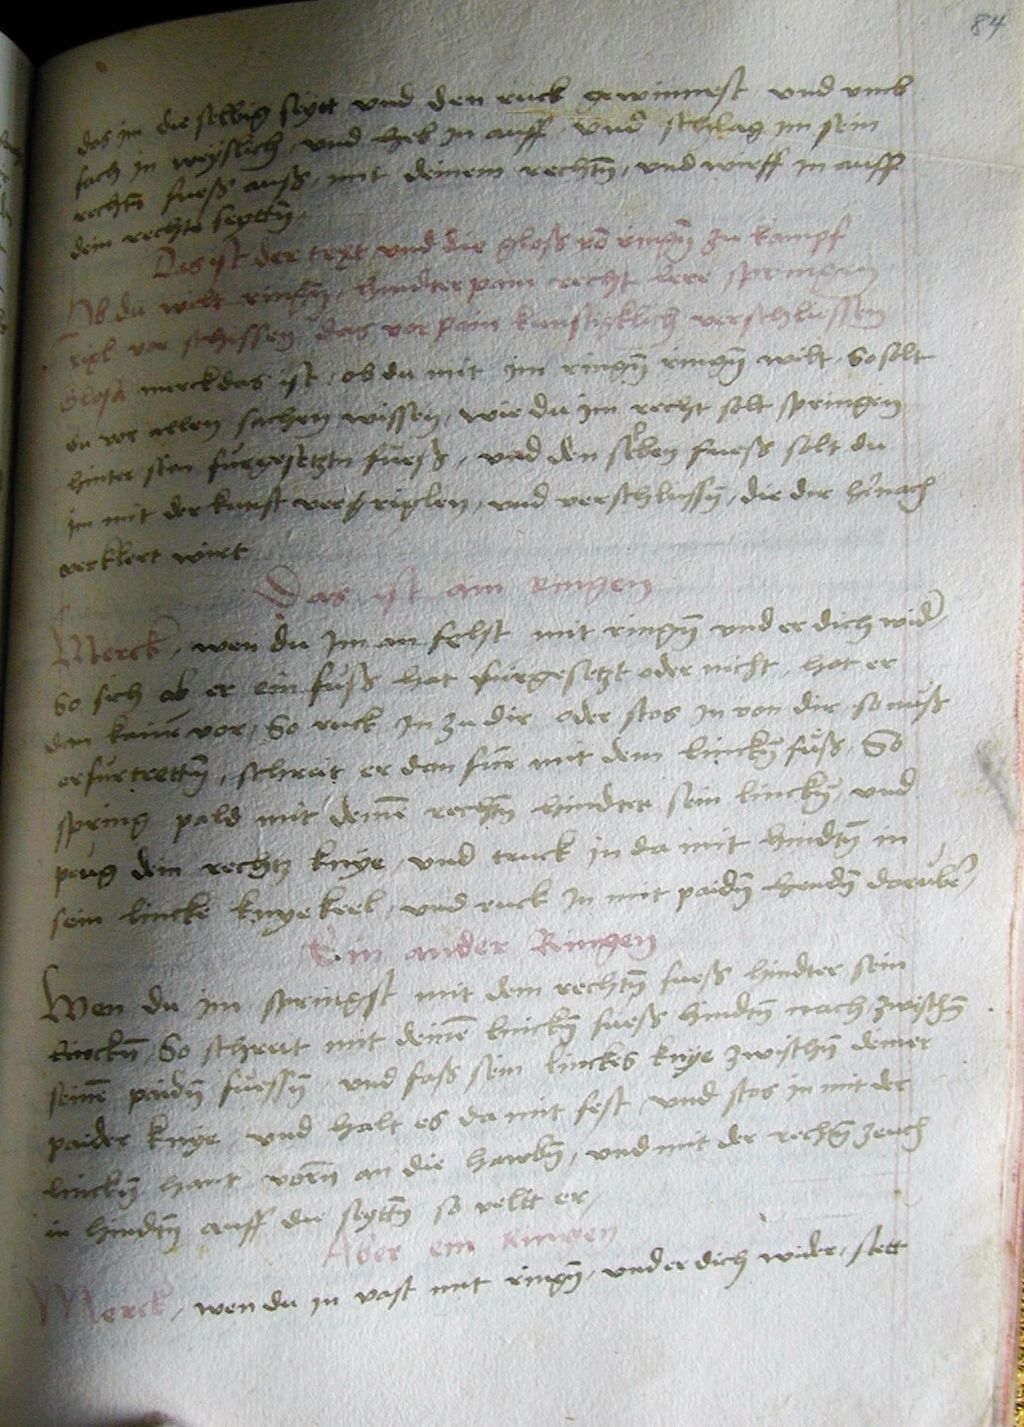 84
das im die selbig seytt vnd den ruck gewinnest vnd vmb
fach in weyslich, vnd heb in auff vnd schlag im sein
rechtñ fueß auß, mit deinem rechtñ, vnd wirff in auff
dein rechte seyttñ
Das ist der text vnd die gloß võ ringñ zu kampf
Ob du wilt ringñ, hindterpain recht lere springen
ripl vor schissen, das vor pain kunsticklich verschliessen
Glosa merck das ist, ob du mit im ringñ ringñ wilt, So solt
du vor allen sachen wissen, wie du im recht solt springen
hinter sein fúrgesetztn fúeß, vnd den selben fueß solt du
im mit der kunst ver riplen, vnd verschlussñ, die dir hernach
verklert wirt
Das ist ain ringen
Merck, wen du im an felst mit ringñ vnd er dich wider
So sich ob er ein fúß hat fúrgesetzt oder nicht, hat er
den kainñ vor, So ruck in zu dir oder stos in von dir, so múß
er fúrtrettñ, schreit er dan fúr mit dem linckñ fúß, So
spring pald mit deinẽ rechtñ hindter sein linckñ, vnd
peúg dein rechtz knye, vnd truck in da mit hindtñ in
sein lincke knyekeel, vnd ruck In mit paidñ hendñ darúber,
Ein ander Ringen
Wen du im springst mit dem rechtñ fueß hindter sein
linckñ, So schreit mit deinẽ linckñ fueß hindtñ nach zwischñ
seinẽ paidñ fúessñ, vnd faß sein linckes knye zwischñ deiner
paider knye vnd halt es da mit fest, vnd stos in mit der
linckñ hant vorñ an die hawbñ, vnd mit der rechtñ zeuch
in hindtñ auff die seyttñ so vellt er,
Aber ein Ringen
Merck, wen du in vast mit ringñ, vnd er dich wider, stett